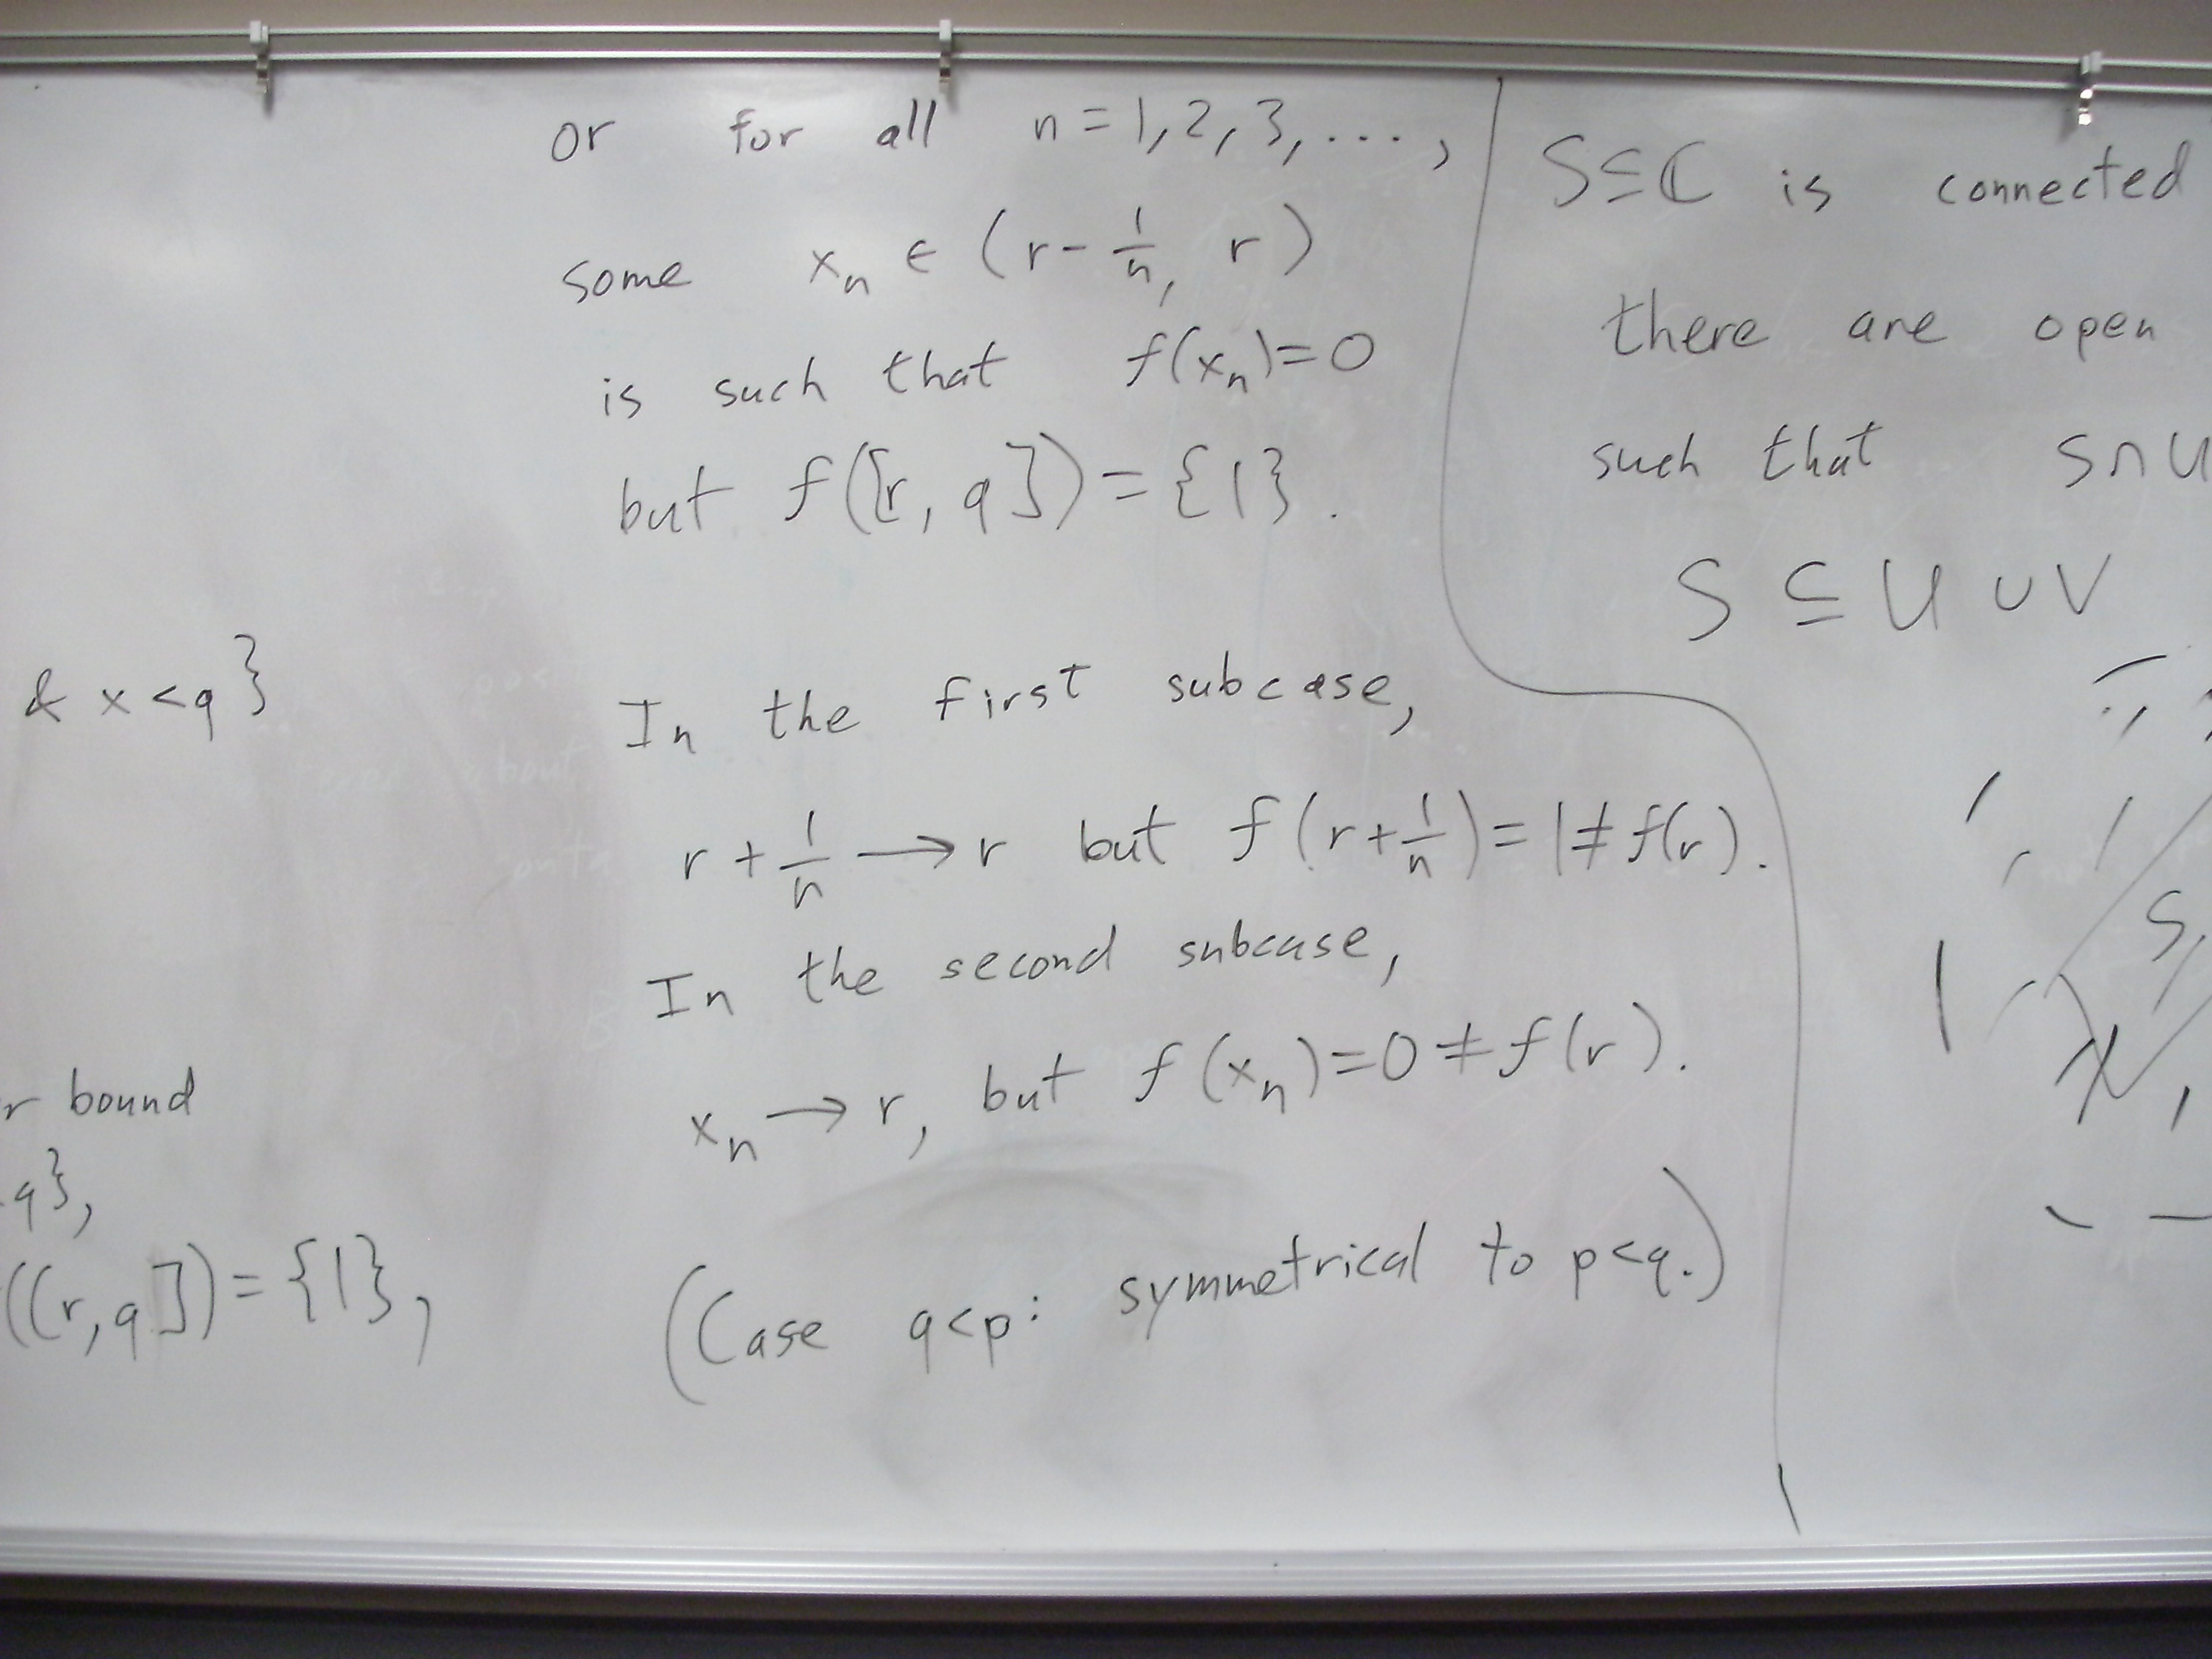 & x < q}
r bound
q},
((r, q]) = {1},
or for all n = 1, 2, 3, ...,
some xₙ ∈ (r - 1/n, r)
is such that f(xₙ) = 0
but f([r, q]) = {1}.
In the first subcase,
r + 1/n → r but f(r + 1/n) = 1 ≠ f(r).
In the second subcase,
xₙ → r, but f(xₙ) = 0 ≠ f(r).
(Case q < p: symmetrical to p < q.)
S ⊆ ℂ is connected
there are open
such that S ∩ U
S ⊆ U ∪ V
S